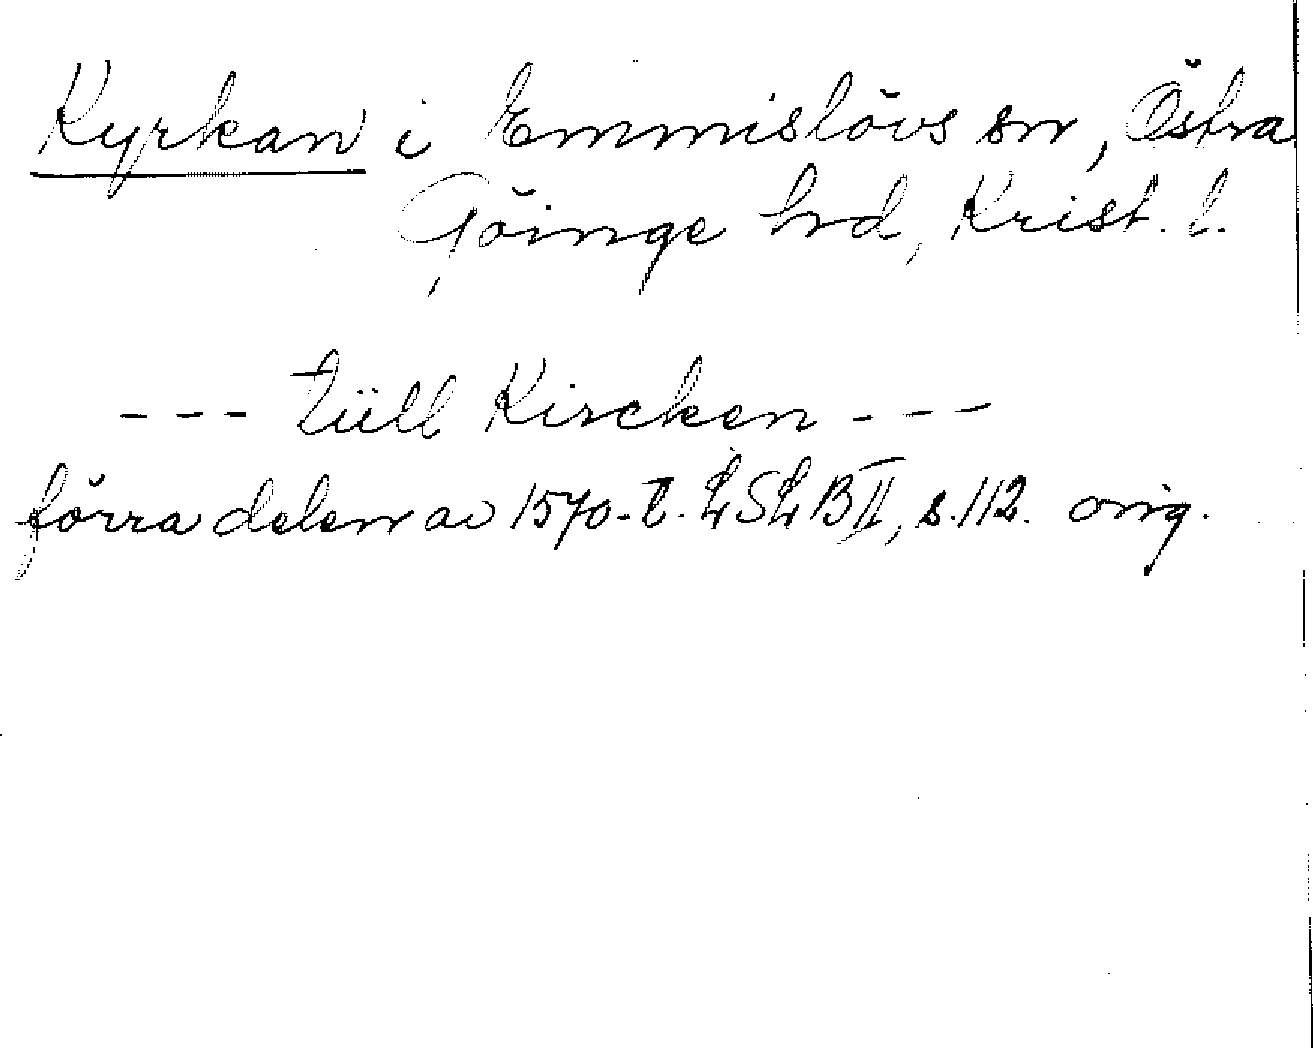 Kyrkan i Emmislövs sn, Östra
Göinge hd, Krist. l.
--- tüll Kircken ---
förra delen av 1570-t. LSLB II, s. 112. orig.